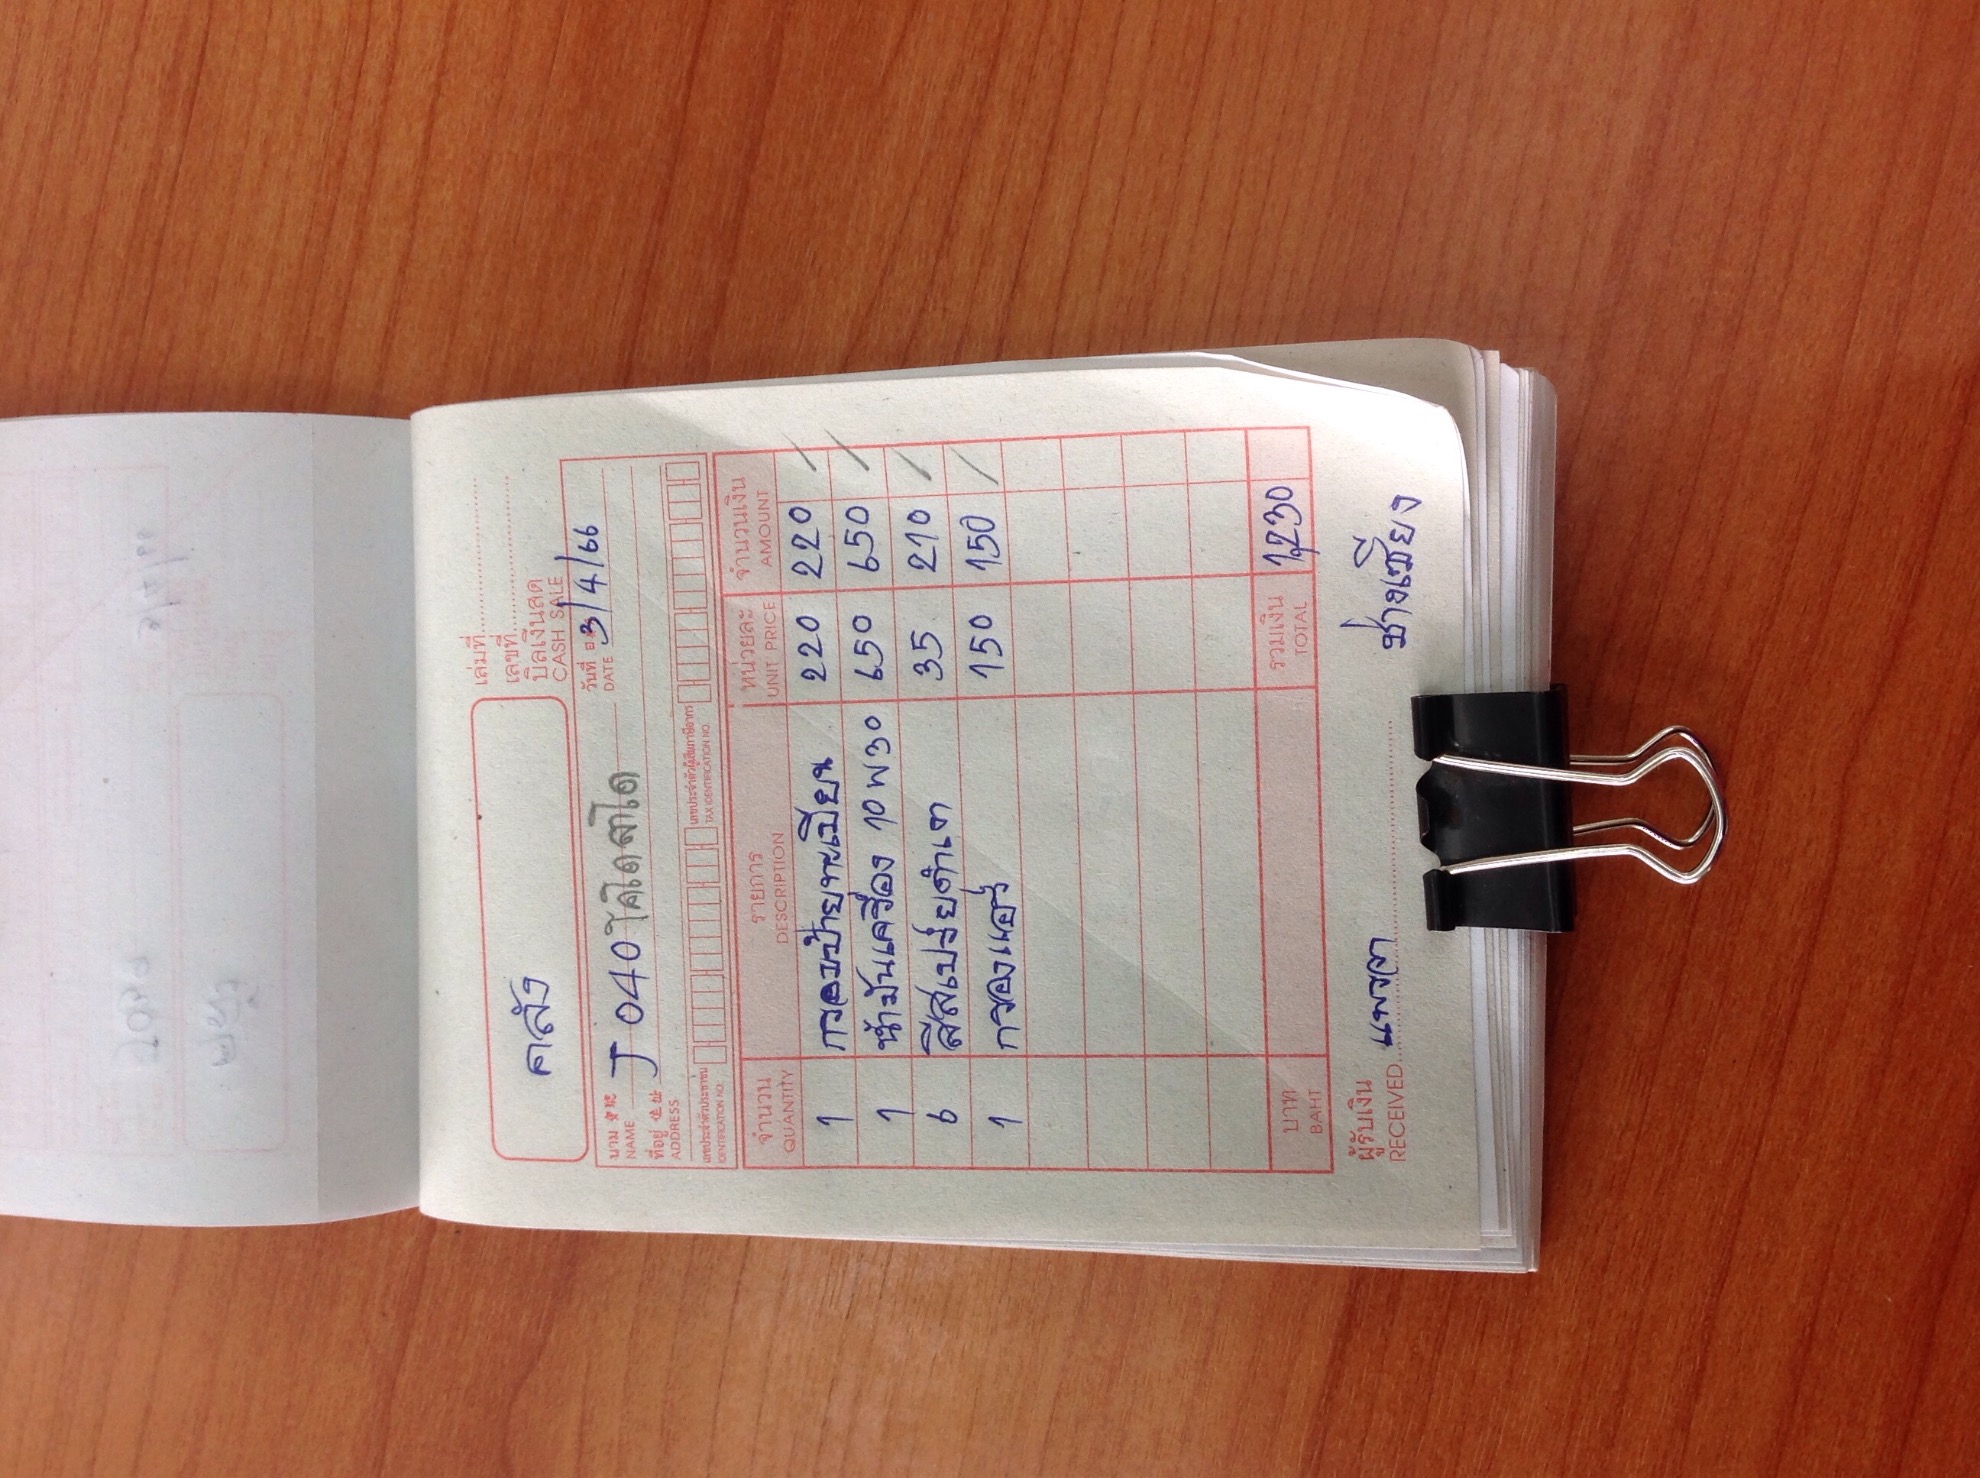 เล่มที่
เลขที่
บิลเงินสด
CASH SALE
คลัง
วันที่ 日期 3/4/66
DATE
นาม 寶號 J 040 โคโดสโด
NAME
ที่อยู่ 住址
ADDRESS
เลขประจำตัวประชาชน เลขประจำตัวผู้เสียภาษีอากร
IDENTIFICATION NO. TAX IDENTIFICATION NO.
จำนวน รายการ หน่วยละ จำนวนเงิน
QUANTITY DESCRIPTION UNIT PRICE AMOUNT
1 กรอบป้ายทะเบียน 220 220 /
1 น้ำมันเครื่อง 10W30 650 650 /
6 สีสเปรย์ดำเงา 35 210 /
1 กรองแอร์ 150 150 /
บาท รวมเงิน 1,230
BAHT TOTAL
ผู้รับเงิน
RECEIVED ช่างเซียง